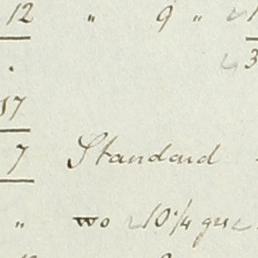 12 " 9 "
3
17
7 Standard
" wo 10 1/4 grs